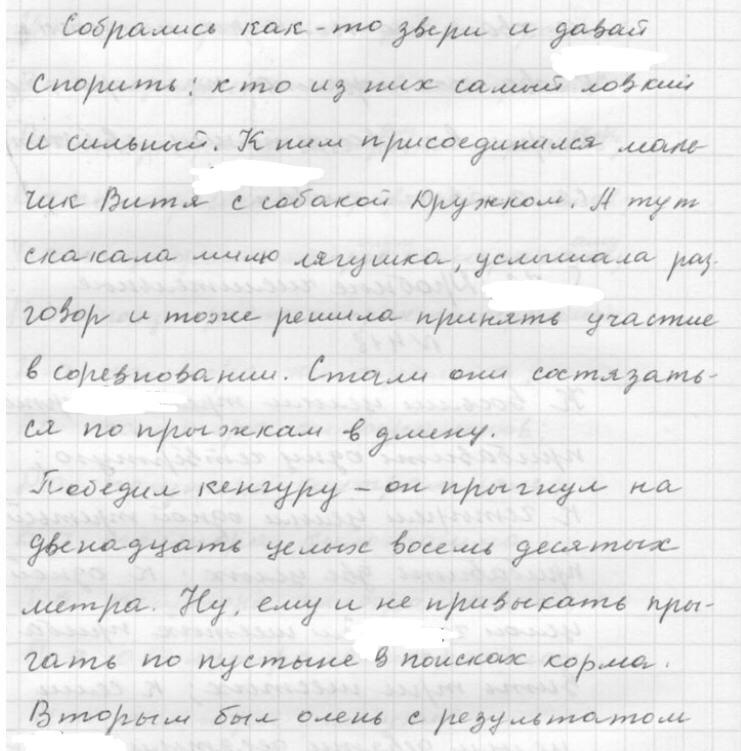 Собрались как-то звери и давай
спорить: кто из них самый ловкий
и сильный. К ним присоединился маль-
чик Витя с собакой Дружком. А тут
скакала мимо лягушка, услышала раз-
говор и тоже решила принять участие
в соревновании. Стали они состязать-
ся по прыжкам в длину.
Победил кенгуру – он прыгнул на
двенадцать целых восемь десятых
метра. Ну, ему и не привыкать пры-
гать по пустыне в поисках корма.
Вторым был олень с результатом